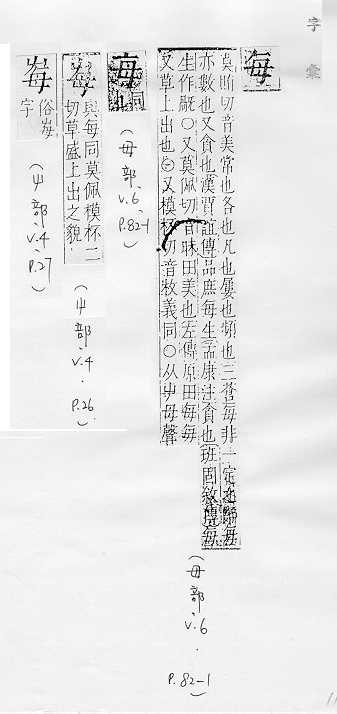 字彙
每
莫昢切音美常也各也凡也屢也頻也三蒼每非一定之辭每
亦數也又食也漢賈誼傳品庶每生孟康注貪也班固敘傳每
生作㒻〇又莫佩切音昧田美也左傳原田每每
又草上出也〇又模杯切音枚義同〇从屮母聲
(毋部、v.6、P.82-1)
同
(毋部、v.6、P.82-1)
與每同莫佩模杯二
切草盛上出之貌
(屮部、v.4、P.26、)
俗每
字
(屮部、v.4、P.27)